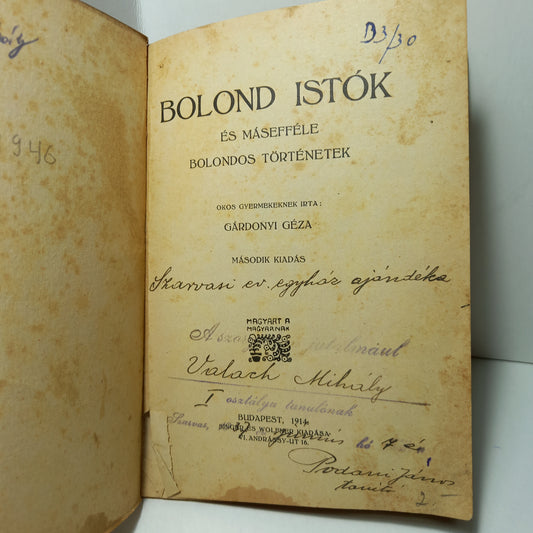 1946
B3/30
BOLOND ISTÓK
ÉS MÁSEFFÉLE
BOLONDOS TÖRTÉNETEK
OKOS GYERMEKEKNEK IRTA:
GÁRDONYI GÉZA
MÁSODIK KIADÁS
Szarvasi ev. egyház ajándéka
MAGYART A
MAGYARNAK
A jutalmául
Valach Mihály
I osztályu tanulónak
BUDAPEST, 1914.
SINGER ÉS WOLFNER KIADÁSA
VI. ANDRÁSSY-UT 16.
Szarvas, junius hó 7 én
Podani János
tanító